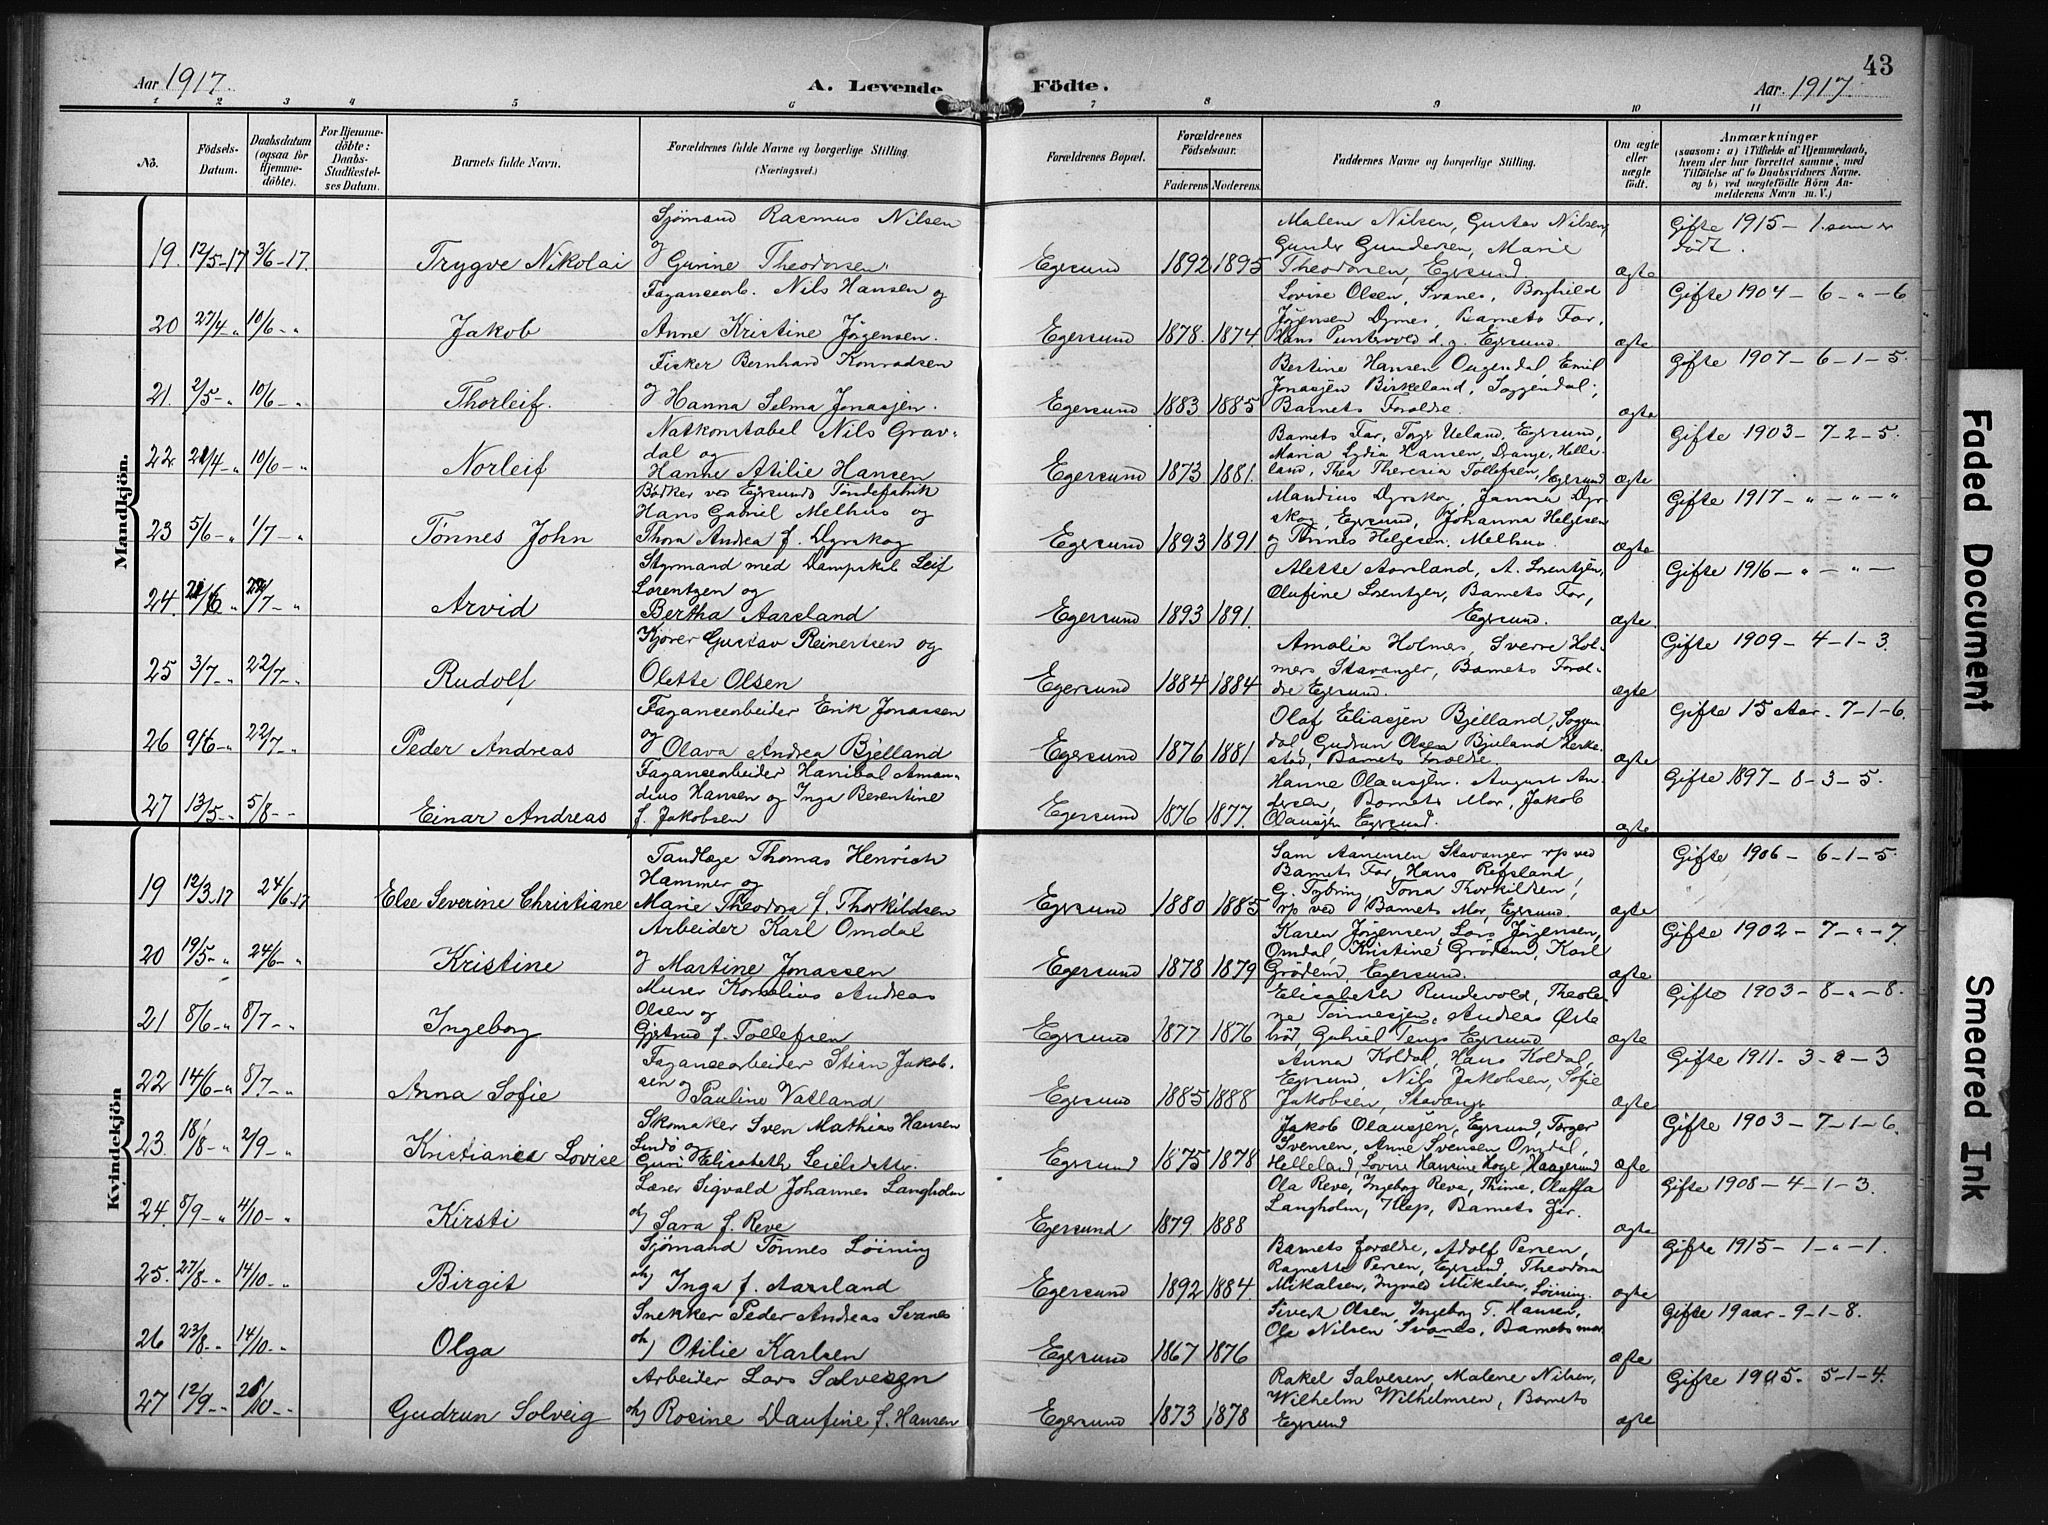 43
Aar 1917.
A. Levende Födte.
Aar. 1917.
1 2 3 4 5 6 7 8 9 10 11
No.
Födsels-Datum.
Daabsdatum (ogsaa for Hjemmedöbte).
For Hjemmedöbte: Daabs-Stadfæstelses Datum.
Barnets fulde Navn.
Forældrenes fulde Navne og borgerlige Stilling. (Næringsvei.)
Forældrenes Bopæl.
Forældrenes Födselsaar.
Faderens Moderens.
Faddernes Navne og borgerlige Stilling.
Om ægte eller uægte födt.
Anmærkninger
(saasom: a) i Tilfælde af Hjemmedaab, hvem der har forrettet samme, med Tilföielse af to Daabsvidners Navne. og b) ved uægtefödte Börn Anmelderens Navn m. V.)
Mandkjön.
19. 12/5-17 3/6-17. Trygve Nikolai
Sjømand Rasmus Nilsen
og Gurine Theodorsen.
Egersund 1892 1895
Malene Nilsen, Gustav Nilsen,
Gunder Gundersen, Marie
Theodorsen, Egersund.
ægte
Gifte 1915 - 1. som er
dødt.
20 27/4-" 10/6-" Jakob
Fagansearb. Nils Hansen og
Anne Kristine Jørgensen.
Egersund 1878. 1874
Lovise Olsen, Svanes, Borghild
Jørgensen Dymes, Barnets Far,
Hans Puntervoed d.y. Egersund.
ægte
Gifte 1904 - 6 - " - 6
21. 2/5-" 10/6-" Thorleif.
Fisker Bernhard Konradsen
og Hanna Selma Jonasjen.
Egersund 1883 1885
Bertine Hansen Ougendal, Emil
Jonasjen Birkeland, Soggendal,
Barnets Foroldre.
ægte
Gifte 1907 - 6 - 1 - 5.
22. 21/4-" 10/6-" Norleif
Natkonstabel Nils Grav-
dal og
Hanne Atilie Hansen
Egersund 1873 1881.
Barnets Far, Torger Ueland, Egersund,
Maria Lydia Hansen, Drange, Helle-
land, Thea Theresia Tollefsen, Egersund
ægte
Gifte 1903 - 7 - 2 - 5.
23 5/6-" 1/7-" Tønnes John
Bødker ved Egersunds Tøndefabrik
Hans Gabriel Melhus og
Thora Andrea f. Dyrskog
Egersund 1893 1891
Mandius Dyrskog, Janna Dyr-
skog, Egersund, Johanna Helgesen
og Tønnes Helgesen. Melhus.
ægte
Gifte 1917 - " - " - "
24. 21/6 " 22/7-" Arvid
Styrmand med Dampskib Leif
Lorentzen og
Bertha Aarsland
Egersund 1893 1891.
Alette Aarsland, A. Lorentzen,
Olufine Lorentzen, Barnets Far,
Egersund.
ægte.
Gifte 1916 - " - " -
25 3/7-" 22/7-" Rudolf
Kjører Gustav Reinertsen og
Olette Olsen
Egersund 1884 1884
Amalia Holmes, Sverre Hol-
mers Stavanger, Barnets Forol-
dre Egersund.
ægte
Gifte 1909 - 4 - 1 - 3.
26 9/6-" 22/7-" Peder Andreas
Fagansearbeider Erik Jonassen
og Olava Andrea Bjelland
Egersund 1876 1881
Olaf Eliasjen Bjelland, Soggen-
dal, Gudrun Olsen Bjuland Heske-
stad, Barnets Forældre.
ægte
Gifte 15 Aar. 7-1-6.
27 13/5-" 5/8-- Einar Andreas
Fagansearbeider Hanibal Aman-
dius Hansen og Inga Berentine
f. Jakobsen
Egersund 1876 1877.
Hanne Olausjen. August An-
dersen, Barnets Mor, Jakob
Olausjen Egersund.
ægte
Gifte 1897 - 8 - 3 - 5.
Kvindekjön
19 12/3.17 24/6.17 Else Severine Christiane
Tandlæge Thomas Henrich
Hammer og
Marie Theodora f. Thorkildsen
Egersund 1880 1885
Sam Aanensen Stavanger rp ved
Barnets Far, Hans Refsland,
G. Tybring, Tona Thorkildsen,
rp ved Barnets Mor, Egersund.
ægte
Gifte 1906 - 6 - 1 - 5.
20 19/5-" 24/6-" Kristine
Arbeider Karl Omdal
og Martine Jonassen
Egersund 1878 1879
Karen Jørgensen, Lars Jørgensen,
Omdal, Kristine Grødem, Karl
Grødem, Egersund.
ægte
Gifte 1902 - 7 - " - 7.
21 8/6-" 8/7-" Ingeborg
Murer Kornelius Andreas
Olsen og
Gjertrud f. Tollefsen
Egersund 1877 1876
Elisabeth Rundevold, Theole-
ne Tønnesjen, Andrea Øste
brød, Gabriel Tengs Egersund
ægte
Gifte 1903 - 8 - " - 8.
22 14/6-" 8/7-" Anna Sofie
Fagansearbeider Stian Jakob-
sen og
Pauline Vatland
Egersund 1885 1888
Anna Koldal, Hans Koldal,
Egersund, Nils Jakobsen, Sofie
Jakobsen, Stavanger
ægte
Gifte 1911. - 3 - " - 3
23. 18/8-" 2/9-" Kristiane Lovise
Skomaker Sven Mathias Hansen
Lindø og
Guri Elisabeth Seielsdatter.
Egersund 1875 1878
Jakob Olausjen, Egersund, Torger
Svensen, Anne Svensen Omdal,
Helleland, Lovise Hansine Hoge, Haagesund
ægte
Gifte 1903 - 7 - 1 - 6.
24. 8/9-" 4/10-" Kirsti
Lærer Sigvald Johannes Langholm
oh) Sara f. Reve
Egersund 1879 1888
Ola Reve, Ingeborg Reve, Thime, Oluffa
Langholm, Klep, Barnets far.
ægte
Gifte 1908 - 4 - 1 - 3.
25. 27/8-" 14/10-" Birgit
Sjømand Tønnes Löining
oh) Inga f. Aarsland
Egersund 1892 1884.
Barnets forældre, Adolf Persen,
Ragnette Persen, Egersund, Theodora
Mikalsen, Ingvald Mikalsen, Löining.
ægte
Gifte 1915 - 1 - " - 1.
26 23/8-" 14/10-" Olga
Snekker Peder Andreas Svanes
oh) Otilie Karlsen
Egersund 1867 1876
Sivert Olsen, Ingeborg T. Hansen,
Ole Nilsen Svanes, Barnets mor
ægte
Gifte 19 aar - 9 - 1 - 8.
27 12/9-" 21/10-" Gudrun Solveig
Arbeider Lars Salvesen
oh) Rosine Daufine f. Hansen
Egersund 1873 1878
Rakel Salvesen, Malene Nilsen,
Wilhelm Wilhelmsen, Barnets
Egersund
ægte
Gifte 1905 - 5 - 1 - 4.
Faded Document
Smeared Ink